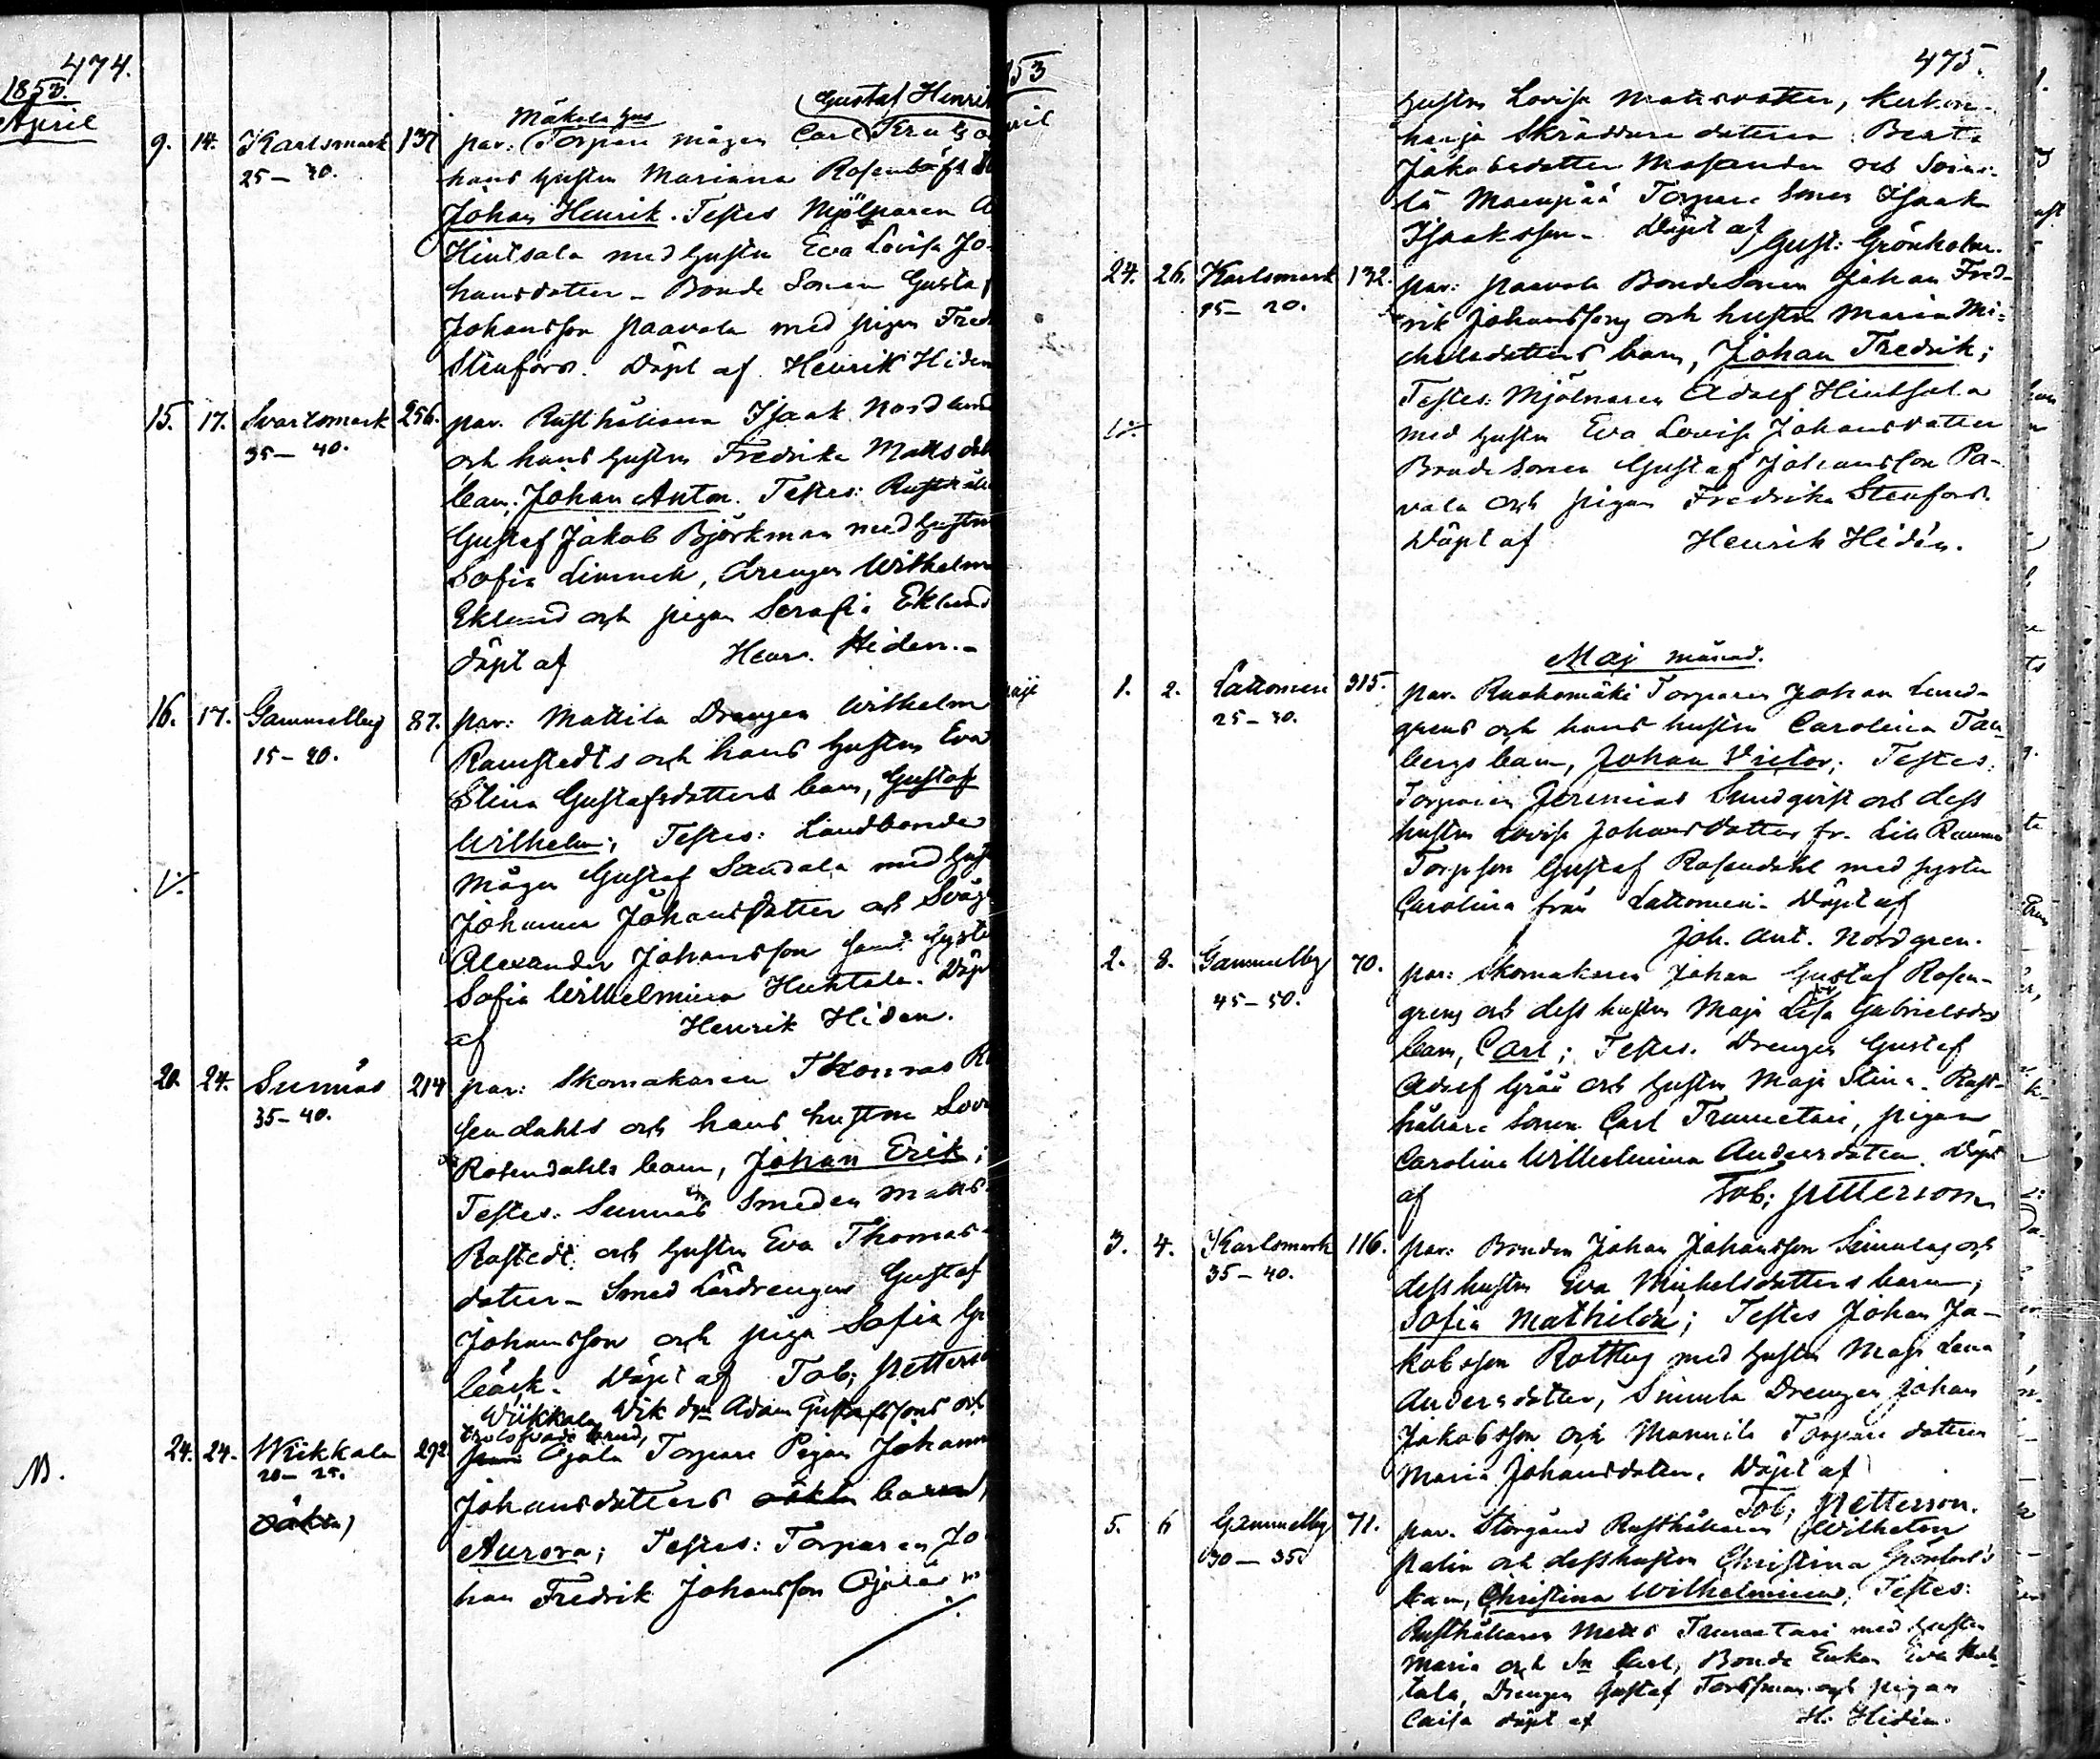 474.
1853.
April
9. 14. Karlsmark 137 par: Torpare mågen Carl
Mäkelä hus
Gustaf Henri
25 – 30. hans hustru Mariana
Johan Henrik. Testes Mjölnaren
Hintsala med hustru Eva Lovisa Jo-
hansdotter – Bonde Sonen Gustaf
Johansson Paavola med pigan Fred
Stenfors. Döpt af Henrik Hiden
15. 17. Svartsmark 256. par. Rusthållaren Isaak Nordlund
35 – 40. och hans hustru Fredrika Matts dot
barn: Johan Anton. Testes: Rusthåll
Gustaf Jakob Björkman med hustru
Sofia, drengen Wilhelm
Eklund och pigan Serafia Eklund
döpt af Henr. Hiden. –
16. 17. Gammelby 87. par: Mattila Drengen Wilhelm
15 – 20. Ramstedts och hans hustru Eva
Stina Gustafsdotters barn, Gustaf
Wilhelm; Testes: Landbonde
mågen Gustaf Sandala med hust
Johanna Johansdotter och Svåg
Alexander Johansson samt syste
Sofia Wilhelmina Huhtala. Döpt
af Henrik Hiden.
20. 24. Sunnäs 214 par: Skomakaren Thomas Ro
35 – 40. sendahls och hans hustru Lov
Rosendahls barn, Johan Erik;
Testes. Sunnäs Smeden Matts
Rostedt och hustru Eva Thomas-
dotter – Smed Lärdrengen Gustaf
Johansson och piga Sofia Gr
bäck. Döpt af Tob; Petterso
Wiikkala Wik drn Adam Gustafssons och
trolofvade brud,
24. 24. Wiikkala 292 Ojala Torpare Pigan Johanna
20 – 25. Johansdotters oäkta barn,
oäkta) Aurora; Testes: Torparen Jo-
han Fredrik Johansson Ojala
53
ril
475.
hustru Lovisa Mattsdotter,
harju Skräddare dottren Beata
Jakobsdotter Masander och Soini-
lä Maenpää Torpare Sonen Isaak
Isaaksson – Döpt af Gust: Grönholm.
24. 26. Karlsmark 132. par: Paavola BondeSonen Johan Fred-
15 – 20. rik Johanssons och hustru Maria Mi-
chelsdotters barn, Johan Fredrik;
Testes: Mjölnaren Adolf Hintsala
med hustru Eva Lovisa Johansdotter
Bonde Sonen Gustaf Johansson Pa-
vola och pigan Fredrika Stenfors.
Döpt af Henrik Hidén.
Maj månad.
maji
1. 2. Lattomeri 315. par. Ruohomäki Torparen Johan Lund-
25 – 30. grens och hans hustru Carolina Tall-
bergs barn, Johan Victor; Testes:
Torparen Jeremias Sundqvist och dess
hustru Lovisa Johansdotter fr. Lill Raumo
Torpson Gustaf Rosendahl med syster
Carolina från Lattomeri – Döpt af
Joh. Ant. Nordgren.
2. 8. Gammelby 70. par: Skomakaren Johan Gustaf Rosen-
45 – 50. grens och dess hustru Maja Lisa Gabrielsdrs
barn, Carl; Testes. Drengen Gustaf
Adolf Grää och hustru Maja Stina. Rust-
hållare Sonen Carl Trumetari, pigan
Carolina Wilhelmina Andersdotter. Döpt
af Tob; Petterson
3. 4. Karlsmark 116. par: Bonden Johan Johansson Simulas och
35 – 40. dess hustru Eva Michelsdotters barn;
Sofia Mathilda; Testes Johan Ja-
kobsson Rotthus med hustru Maja Lena
Andersdotter, Simula Drengen Johan
Jakobsson och Mannila Torpare dottren
Maria Johansdotter. Döpt af
Tob; Petterson.
5. 6 Gammelby 71. par. Storgård Rusthållaren Wilhelm
30 – 35 Palin och dess hustru Christina Grönfors's
barn, Christina Wilhelmina; Testes:
Rusthållaren Matts Trumetari med hustru
Maria och Sn Carl, Bonde Enkan Eva Huh-
tala, Drengen Gustaf Torssman och pigan
Caisa döpt af H: Hidén.